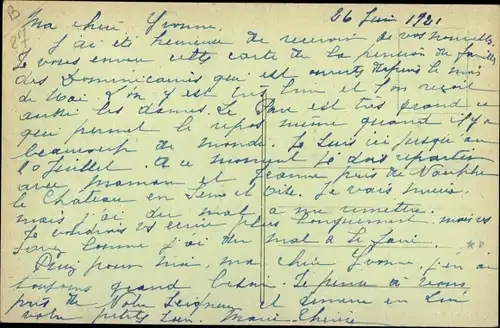 B
27
26 Juin 1921
Ma chère Yvonne.
J'ai été heureuse de recevoir de vos nouvelles
Je vous envoie cette carte de la pension de famille
des Dominicaines qui est ouverte depuis le mois
de Mai. L'on y est très bien et l'on reçoit
aussi les dames. Le Parc est très grand ce
qui permet le repos même quand il y a
beaucoup de monde. Je suis ici jusqu'au
10 Juillet. A ce moment je dois repartir
avec maman et Jeanne près de
le Château en Seine et Oise. Je vais mieux
mais j'ai du mal à me remettre.
Je voudrais vs écrire plus longuement mais vs
savez comme j'ai du mal à le faire.
Priez pour moi, ma chère Yvonne, j'en ai
toujours grand besoin. Je pense à vous
près de Notre Seigneur et demeure en Lui
votre petite sœur. Marie